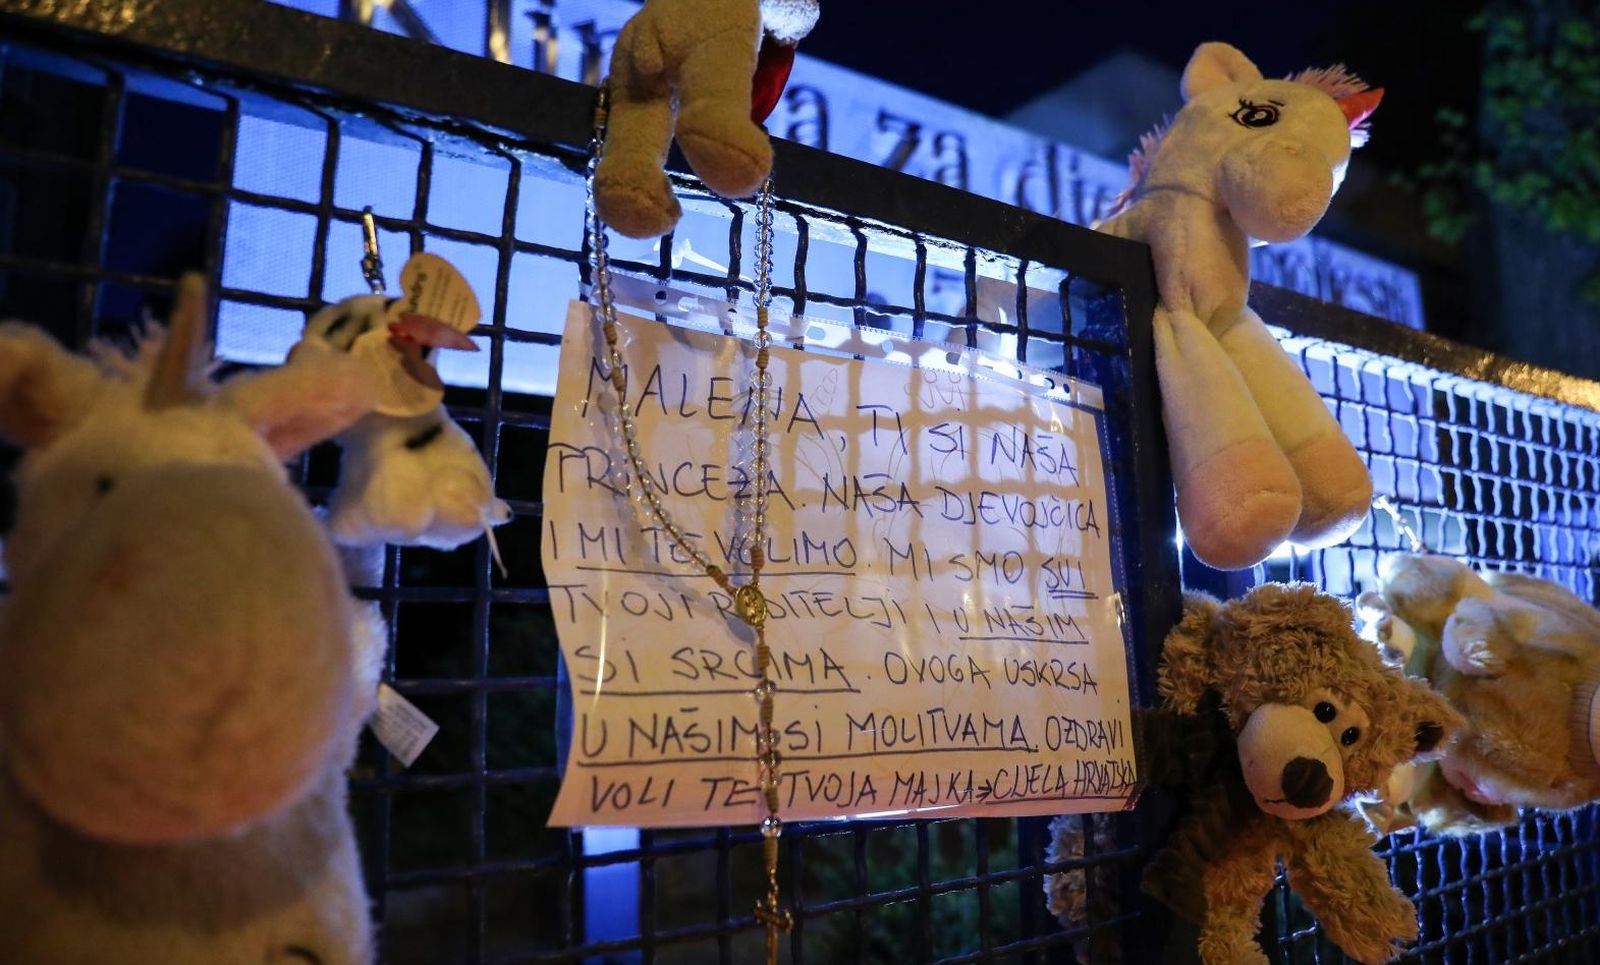 Klin a za dje
MALENA, TI SI NAŠA
PRINCEZA. NAŠA DJEVOJČICA
I MI TE VOLIMO. MI SMO SVI
TVOJI RODITELJI I U NAŠIM
SI SRCIMA. OVOGA USKRSA
U NAŠIM SI MOLITVAMA. OZDRAVI
VOLI TE TVOJA MAJKA → CIJELA HRVATSKA